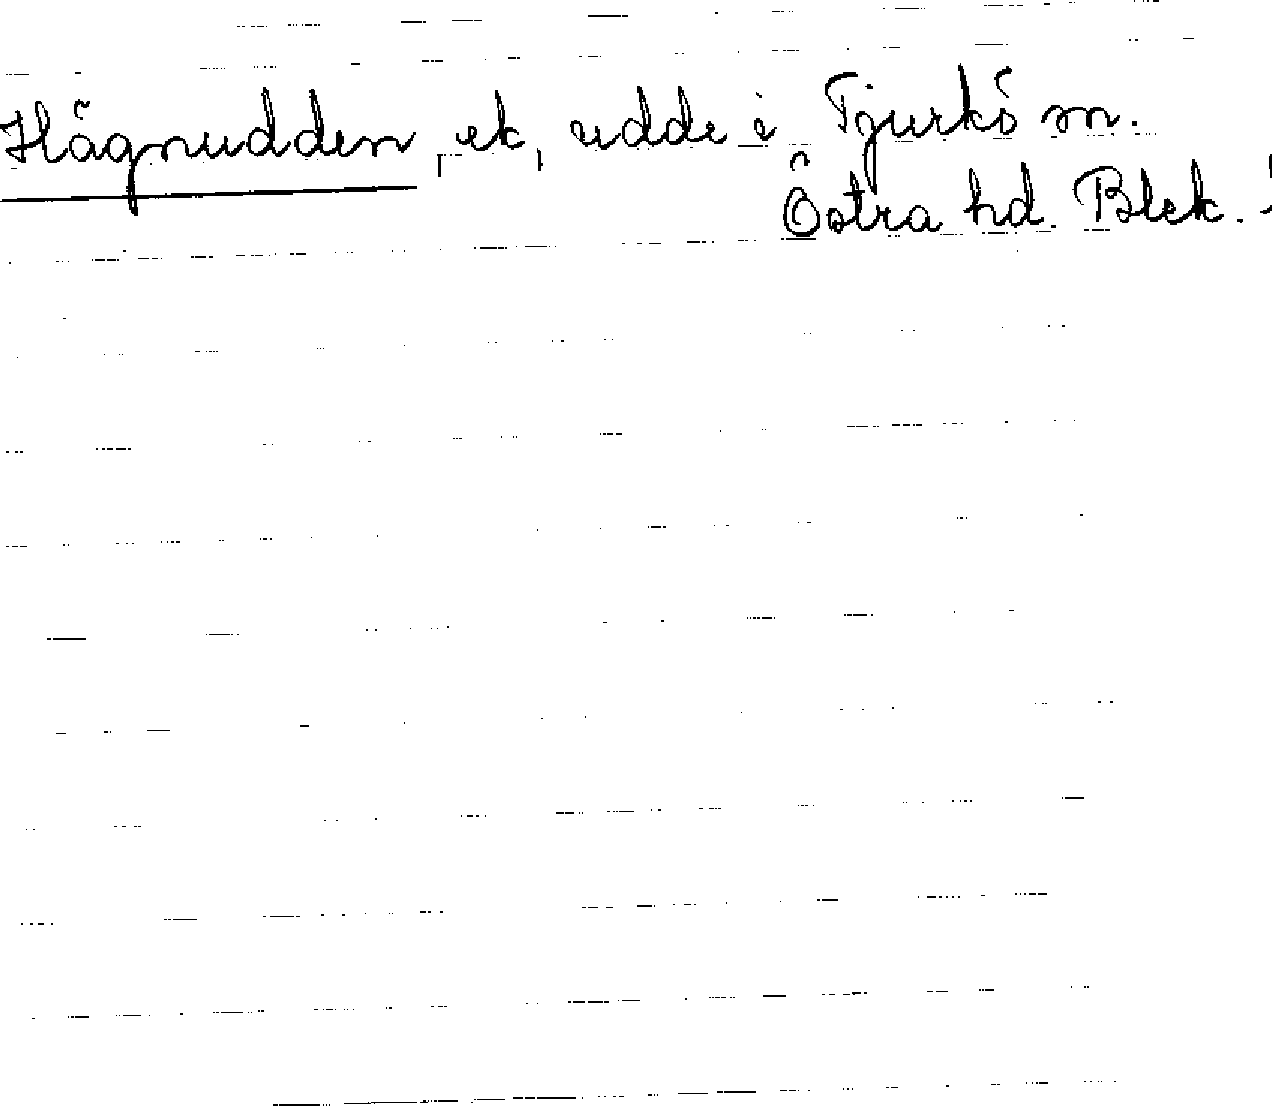 Hägnudden, ek, udde i Tjurkö sn.
Östra hd. Blek.